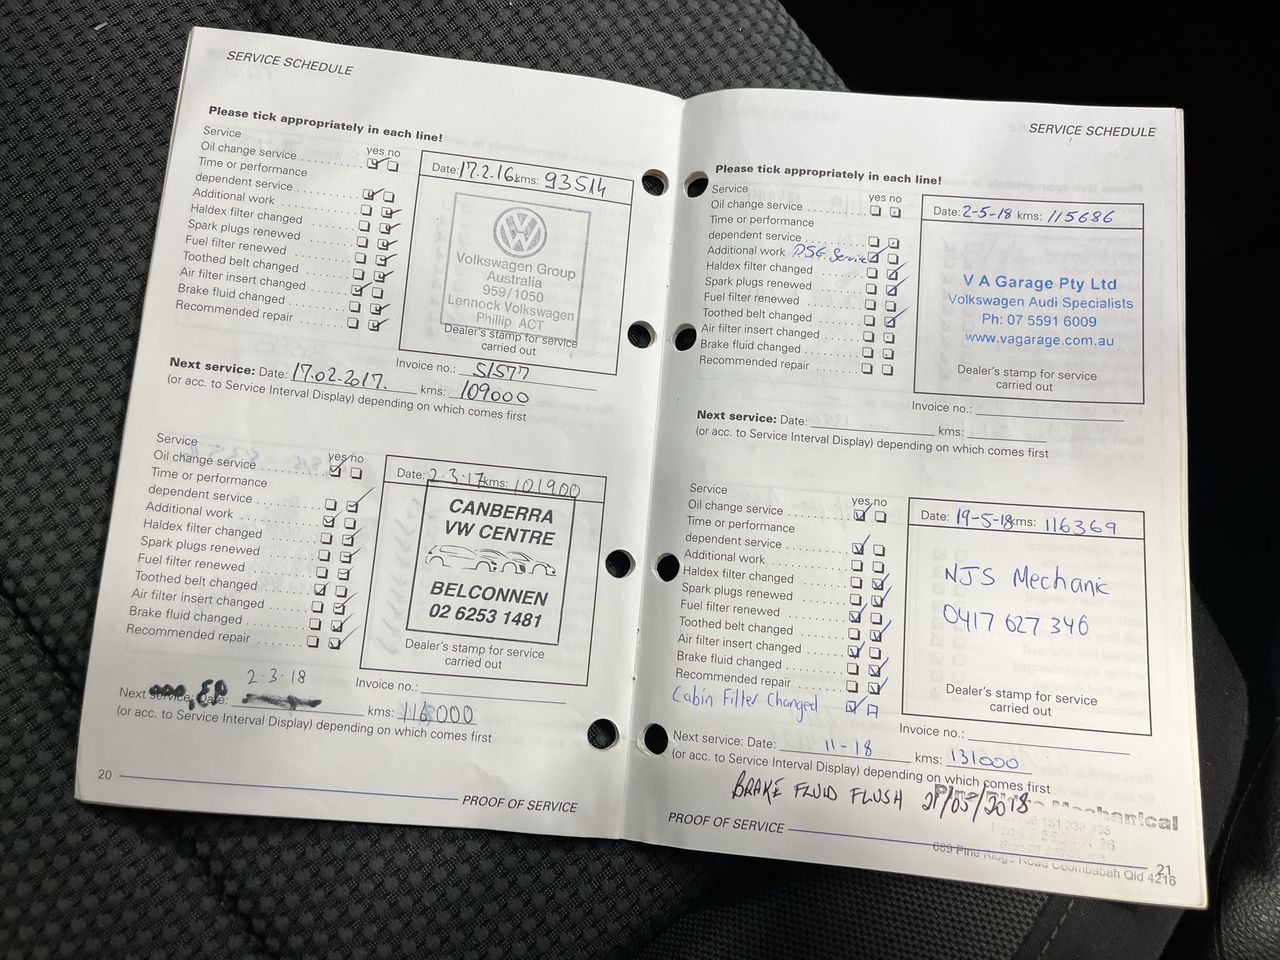 SERVICE SCHEDULE
Please tick appropriately in each line!
Service
yes no
Oil change service
Time or performance
dependent service
Additional work
Haldex filter changed
Spark plugs renewed
Fuel filter renewed
Toothed belt changed
Air filter insert changed
Brake fluid changed
Recommended repair
Date: 17.2.16 kms: 93514
Volkswagen Group
Australia
959/1050
Lennock Volkswagen
Phillip ACT
Dealer's stamp for service
carried out
Invoice no.: 51577
Next service: Date: 17.02.2017. kms: 109000
(or acc. to Service Interval Display) depending on which comes first
Service
yes no
Oil change service
Time or performance
dependent service
Additional work
Haldex filter changed
Spark plugs renewed
Fuel filter renewed
Toothed belt changed
Air filter insert changed
Brake fluid changed
Recommended repair
Date: 2-3-17 kms: 101900
CANBERRA
VW CENTRE
BELCONNEN
02 6253 1481
Dealer's stamp for service
carried out
Invoice no.:
2-3-18
Next service: Date: kms: 116000
(or acc. to Service Interval Display) depending on which comes first
20
PROOF OF SERVICE
SERVICE SCHEDULE
Please tick appropriately in each line!
Service
yes no
Oil change service
Time or performance
dependent service
Additional work DSG Service
Haldex filter changed
Spark plugs renewed
Fuel filter renewed
Toothed belt changed
Air filter insert changed
Brake fluid changed
Recommended repair
Date: 2-5-18 kms: 115686
V A Garage Pty Ltd
Volkswagen Audi Specialists
Ph: 07 5591 6009
www.vagarage.com.au
Dealer's stamp for service
carried out
Invoice no.:
Next service: Date: kms:
(or acc. to Service Interval Display) depending on which comes first
Service
yes no
Oil change service
Time or performance
dependent service
Additional work
Haldex filter changed
Spark plugs renewed
Fuel filter renewed
Toothed belt changed
Air filter insert changed
Brake fluid changed
Recommended repair
Cabin Filter Changed
Date: 19-5-18 kms: 116369
NJS Mechanic
0417 627 346
Dealer's stamp for service
carried out
Invoice no.:
Next service: Date: 11-18 kms: 131000
(or acc. to Service Interval Display) depending on which comes first
BRAKE FLUID FLUSH 21/05/2018
Pine Mechanical
689 Pine Ridge Road Coombabah Qld 4216
PROOF OF SERVICE
21